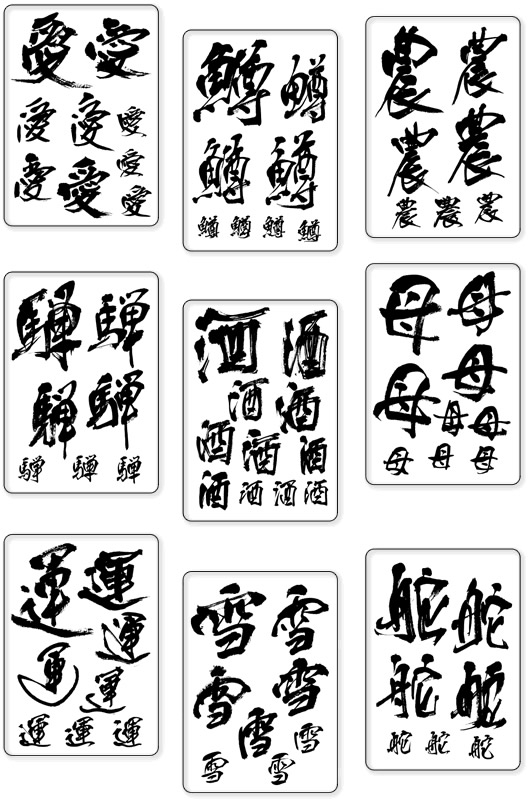 愛愛
愛愛愛
愛愛愛愛
鱒鱒
鱒鱒
鱒鱒鱒鱒
農農
農農
農農農
騨騨
騨騨
騨騨騨
酒酒
酒酒
酒酒酒
酒酒酒酒
母母
母母
母母
母母母
運運
運
運運
運運運
雪雪
雪雪
雪雪
雪雪
舵舵
舵舵
舵舵舵